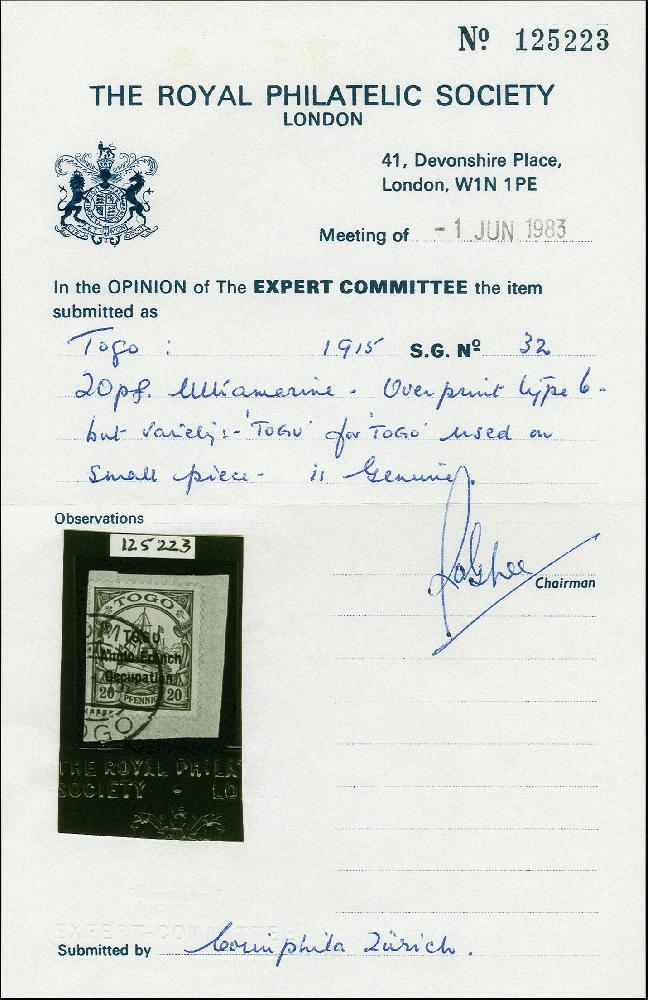 Nº 125223
THE ROYAL PHILATELIC SOCIETY
LONDON
41, Devonshire Place,
London, W1N 1PE
Meeting of - 1 JUN 1983
In the OPINION of The EXPERT COMMITTEE the item
submitted as
Togo : 1915 S.G. Nº 32
20pf. Ultramarine - Overprint type 6 -
but variety:- 'TOGU' for 'TOGO' used on
small piece - is Genuine.
Observations
125223
Chairman
TOGO
TOGU
Anglo-French
Occupation
20 PFENNIG 20
OGO
THE ROYAL PHILA
SOCIETY - LO
EXPERT COMMITTEE
Submitted by Corinphila Zürich.